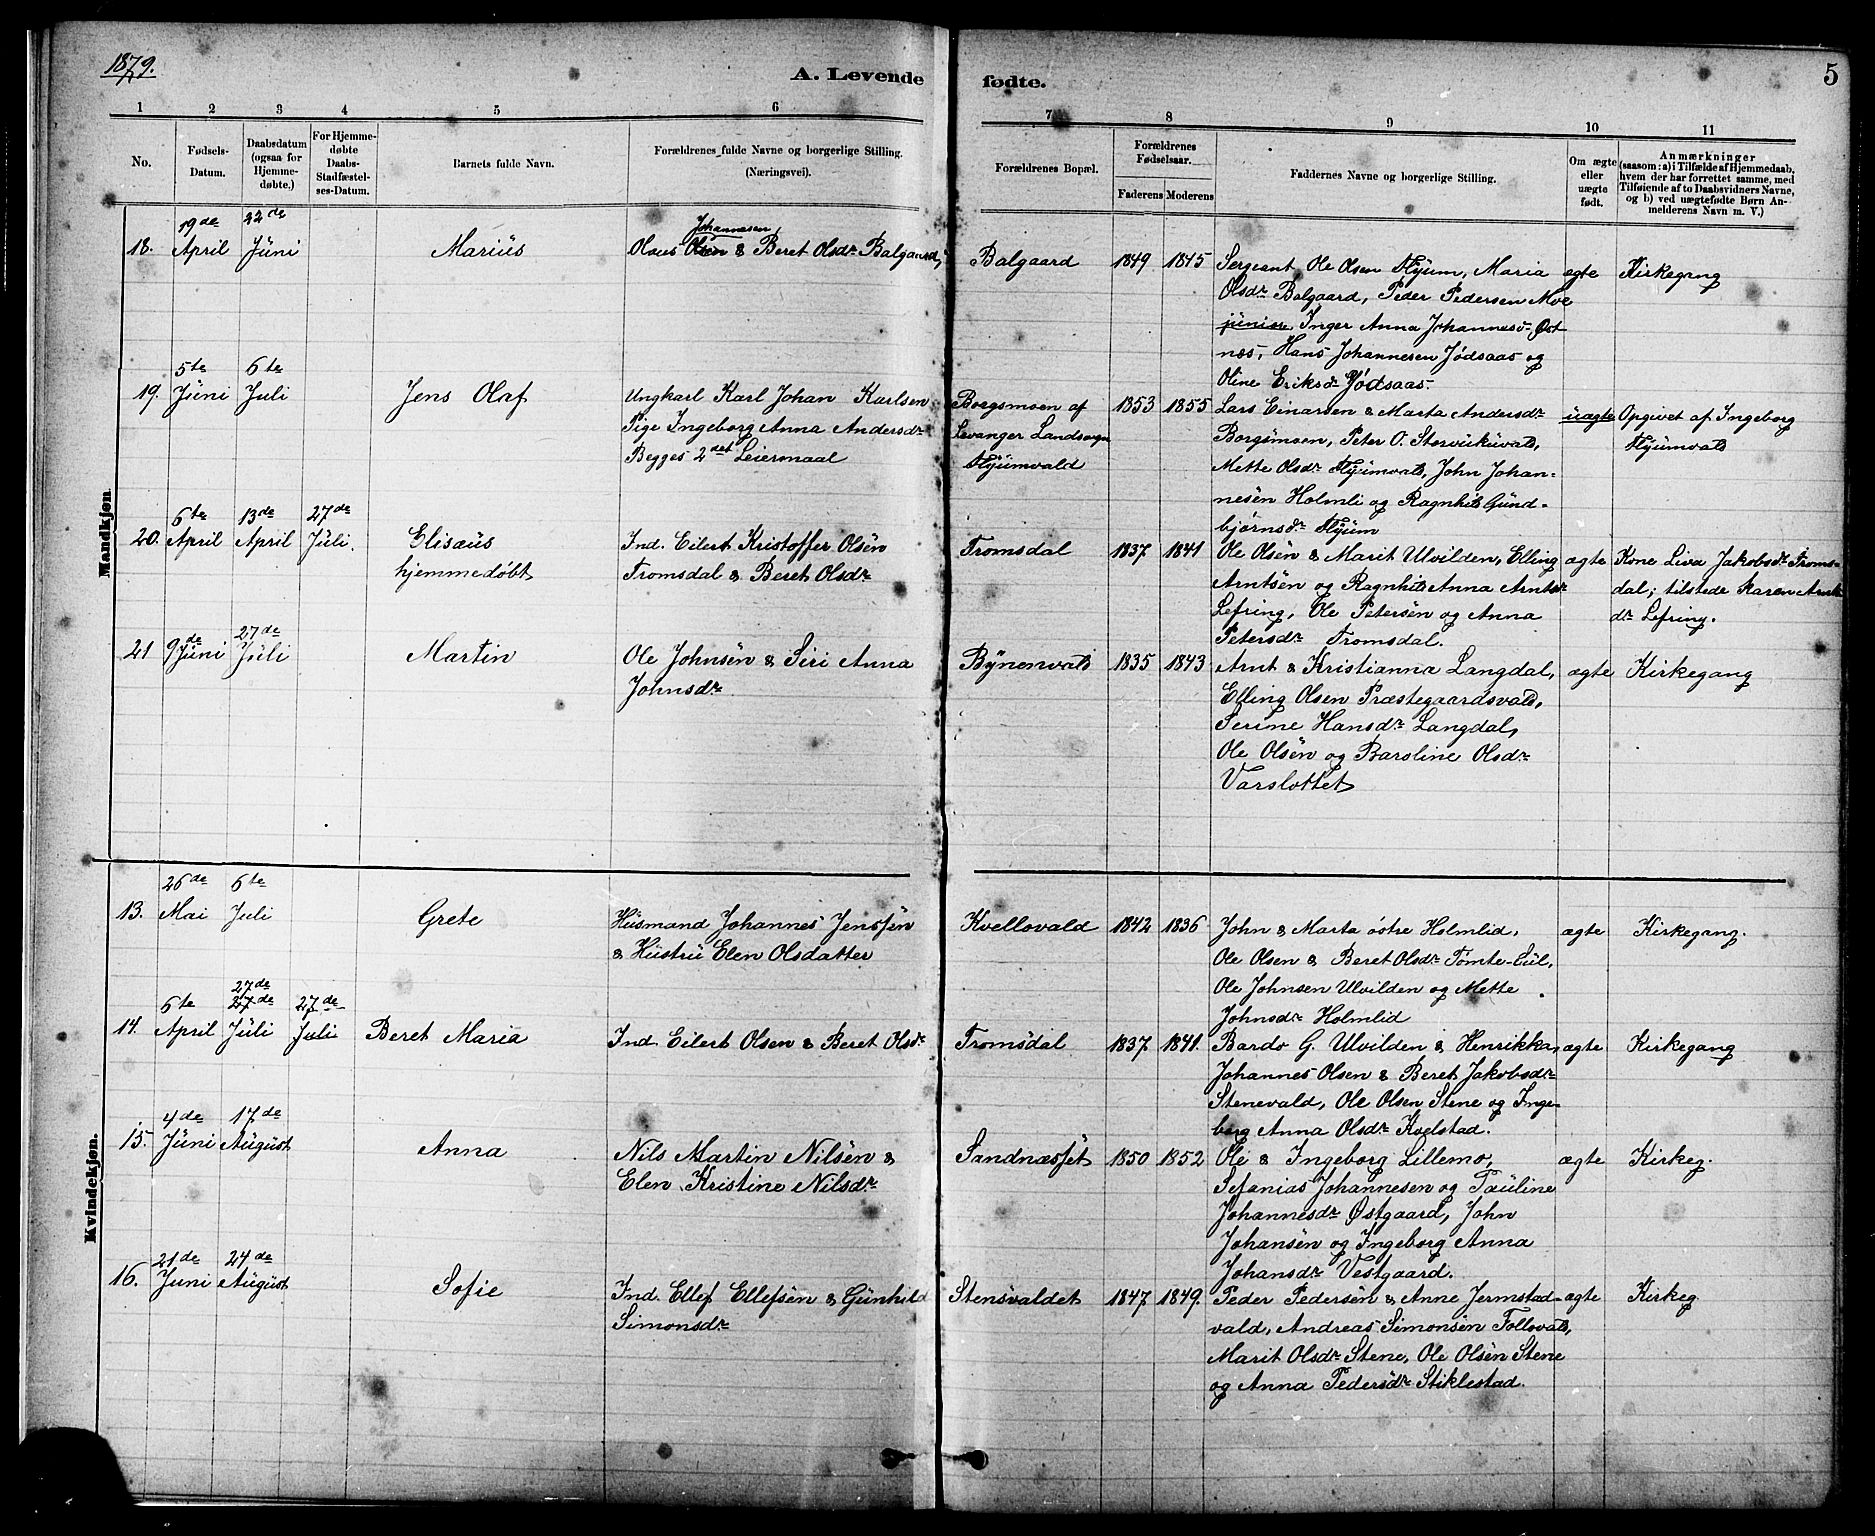 1879.
A. Levende fødte.
5
1 2 3 4 5 6 7 8 9 10 11
No.
Fødsels-
Datum.
Daabsdatum
(ogsaa for
Hjemme-
døbte.)
For Hjemme-
døbte
Daabs-
Stadfæstel-
ses-Datum.
Barnets fulde Navn.
Forældrenes fulde Navne og borgerlige Stilling.
(Næringsvei).
Forældrenes Bopæl.
Forældrenes
Fødselsaar.
Faderens Moderens
Faddernes Navne og borgerlige Stilling.
Om ægte
eller
uægte
født.
Anmærkninger
(saasom: a) i Tilfælde af Hjemmedaab,
hvem der har forrettet samme, med
Tilføiende af to Daabsvidners Navne,
og b) ved uægtefødte Børn An-
melderens Navn m. V.)
Mandkjøn.
18.
19de
April
22de
Juni
Marius
Johannesen
Olaus Olsen & Beret Olsdr Balgaard,
Balgaard
1849 1845
Sergeant Ole Olsen Flyum, Maria
Olsdr Balgaard, Peder Pedersen Moe
junior, Inger Anna Johannesd. Øst-
næs, Hans Johannesen Jødsaas og
Oline Eriksdr Jødsaas.
ægte
Kirkegang
19.
5te
Juni
6te
Juli
Jens Olaf
Ungkarl Karl Johan Karlsen
Pige Ingeborg Anna Andersdr
Begges 2det Leiermaal
Borgsmoen af
Levanger Landsogn
Flyumvald
1853 1855
Lars Einarsen & Marta Andersdr
Borgsmoen, Peter O. Storvukuvald,
Mette Olsdr Flyumvald, John Johan-
nesen Holmli og Ragnhild Gund-
bjørnsdr Flyum
uægte
Opgivet af Ingeborg
Flyumvald
20.
6te
April
13de
April
27de
Juli.
Elisæus
hjemmedøbt
Ind. Eilert Kristoffer Olsen
Tromsdal & Beret Olsdr
Tromsdal
1837. 1841
Ole Olsen & Marit Ulvilden, Elling
Arntsen og Ragnhild Anna Arntsdr
Lefring, Ole Petersen og Anna
Petersdr Tromsdal.
ægte
Kone Liva Jakobsdr Troms-
dal; tilstede Karen Arnt-
dr Lefring.
21
9de
Juni
27de
Juli
Martin
Ole Johnsen & Siri Anna
Johnsdr
Bynenvald
1835 1843
Arnt & Kristianna Langdal,
Elling Olsen Præstegaardsvald,
Serine Hansdr Langdal,
Ole Olsen og Baroline Olsdr
Varslottet
ægte
Kirkegang
Kvindekjøn.
13.
26de
Mai
6te
Juli
Grete
Husmand Johannes Jenssen
& Hustru Elen Olsdatter
Kvellovald
1842 1836
John & Marta østre Holmlid,
Ole Olsen & Beret Olsdr Tømte-Lul,
Ole Johnsen Ulvilden og Mette
Johnsdr Holmlid
ægte
Kirkegang.
14.
6te
April
27de
27de
Juli
27de
Juli
Beret Maria
Ind. Eilert Olsen & Beret Olsdr
Tromsdal
1837. 1841.
Bardo G. Ulvilden & Henrikka,
Johannes Olsen & Beret Jakobsdr
Stenevald, Ole Olsen Stene og Inge-
borg Anna Olsdr Kvelstad.
ægte
Kirkegang
15.
4de
Juni
17de
August
Anna
Nils Martin Nilsen &
Elen Kristine Nilsdr
Sandnæsset
1850 1852
Ole & Ingeborg Lillemo,
Sefanias Johannesen og Pauline
Johannesdr Østgaard, John
Johansen og Ingeborg Anna
Johansdr Vestgaard.
ægte
Kirkeg.
16.
21de
Juni
24de
August
Sofie
Ind. Ellef Ellefsen & Gunhild
Simonsdr
Stensvaldet
1847. 1849.
Peder Pedersen & Anne Jermstad-
vald, Andreas Simonsen Follovald,
Marit Olsdr Stene, Ole Olsen Stene
og Anna Pedersdr Stiklestad.
ægte
Kirkeg